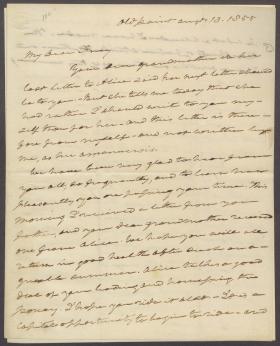 Old Point Augt 13. 1855
My Dear
Your dear grandmother in her
last letter to Alice said her next letter should
be to you. But she tells me today that she
had rather I should write to you my-
self than for her - and this letter is there-
fore from myself - and not written by
me, as her amanuensis.
We have been very glad to hear from
you all, so frequently, and to learn how
pleasantly you are passing your time. This
morning I received a letter from your
father, and your dear grandmother received
one from Alice. We hope you will all
return in good health after such an a-
greeable summer. Alice talks a good
deal of your leading and harnessing the
poney. I hope you ride it also - It is a
capital opportunity to begin to ride - and